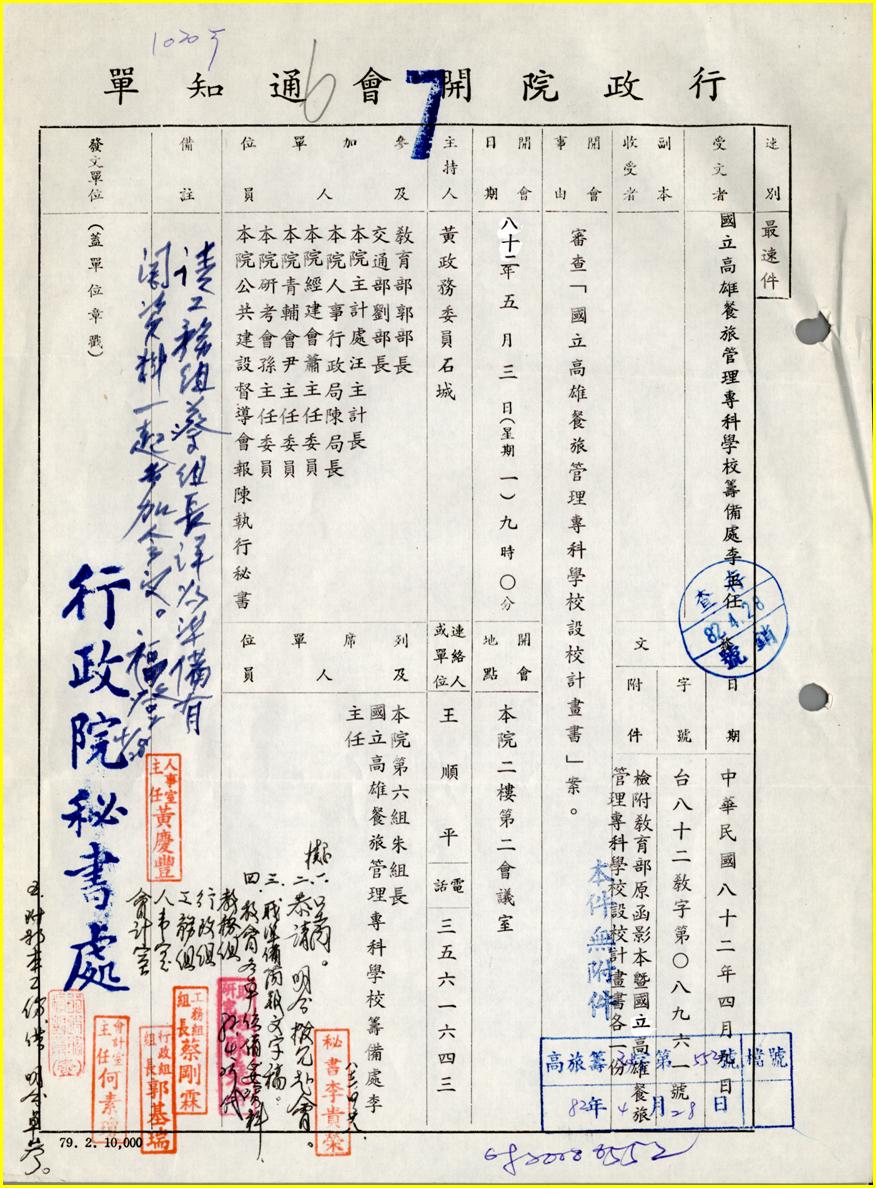 行政院開會通知單
7
6
速別
最速件
受文者
國立高雄餐旅管理專科學校籌備處李主任
副本收受者
發文
日期
中華民國八十二年四月 日
字號
台八十二教字第〇八九六一號
附件
檢附教育部原函影本暨國立高雄餐旅
管理專科學校設校計畫書各一份
本件無附件
開會事由
審查「國立高雄餐旅管理專科學校設校計畫書」案。
開會日期
八十二年五月三日(星期一)九時〇分
開會地點
本院二樓第二會議室
主持人
黃政務委員石城
連絡人或單位
王順平
電話
三五六一六四三
參加單位及人員
教育部郭部長
交通部劉部長
本院主計處汪主計長
本院人事行政局陳局長
本院經建會蕭主任委員
本院青輔會尹主任委員
本院研考會孫主任委員
本院公共建設督導會報陳執行秘書
列席單位及人員
本院第六組朱組長
國立高雄餐旅管理專科學校籌備處李
主任
備註
請工務組蔡組長詳為準備有
關資料一起參加會議。
發文單位
(蓋單位章戳)
行政院秘書處
擬:一、呈閱。
二、恭請
三、職準備簡報文字稿。
四、
教務組
行政組
工務組
人事室
會計室
秘書李貴榮
工務組組長蔡剛霖
行政組組長郭基瑞
會計室主任何素
人事室主任黃慶豐
查
82.4.28
銷號
高旅籌 第552號
82年4月28日
檔號
79. 2. 10,000